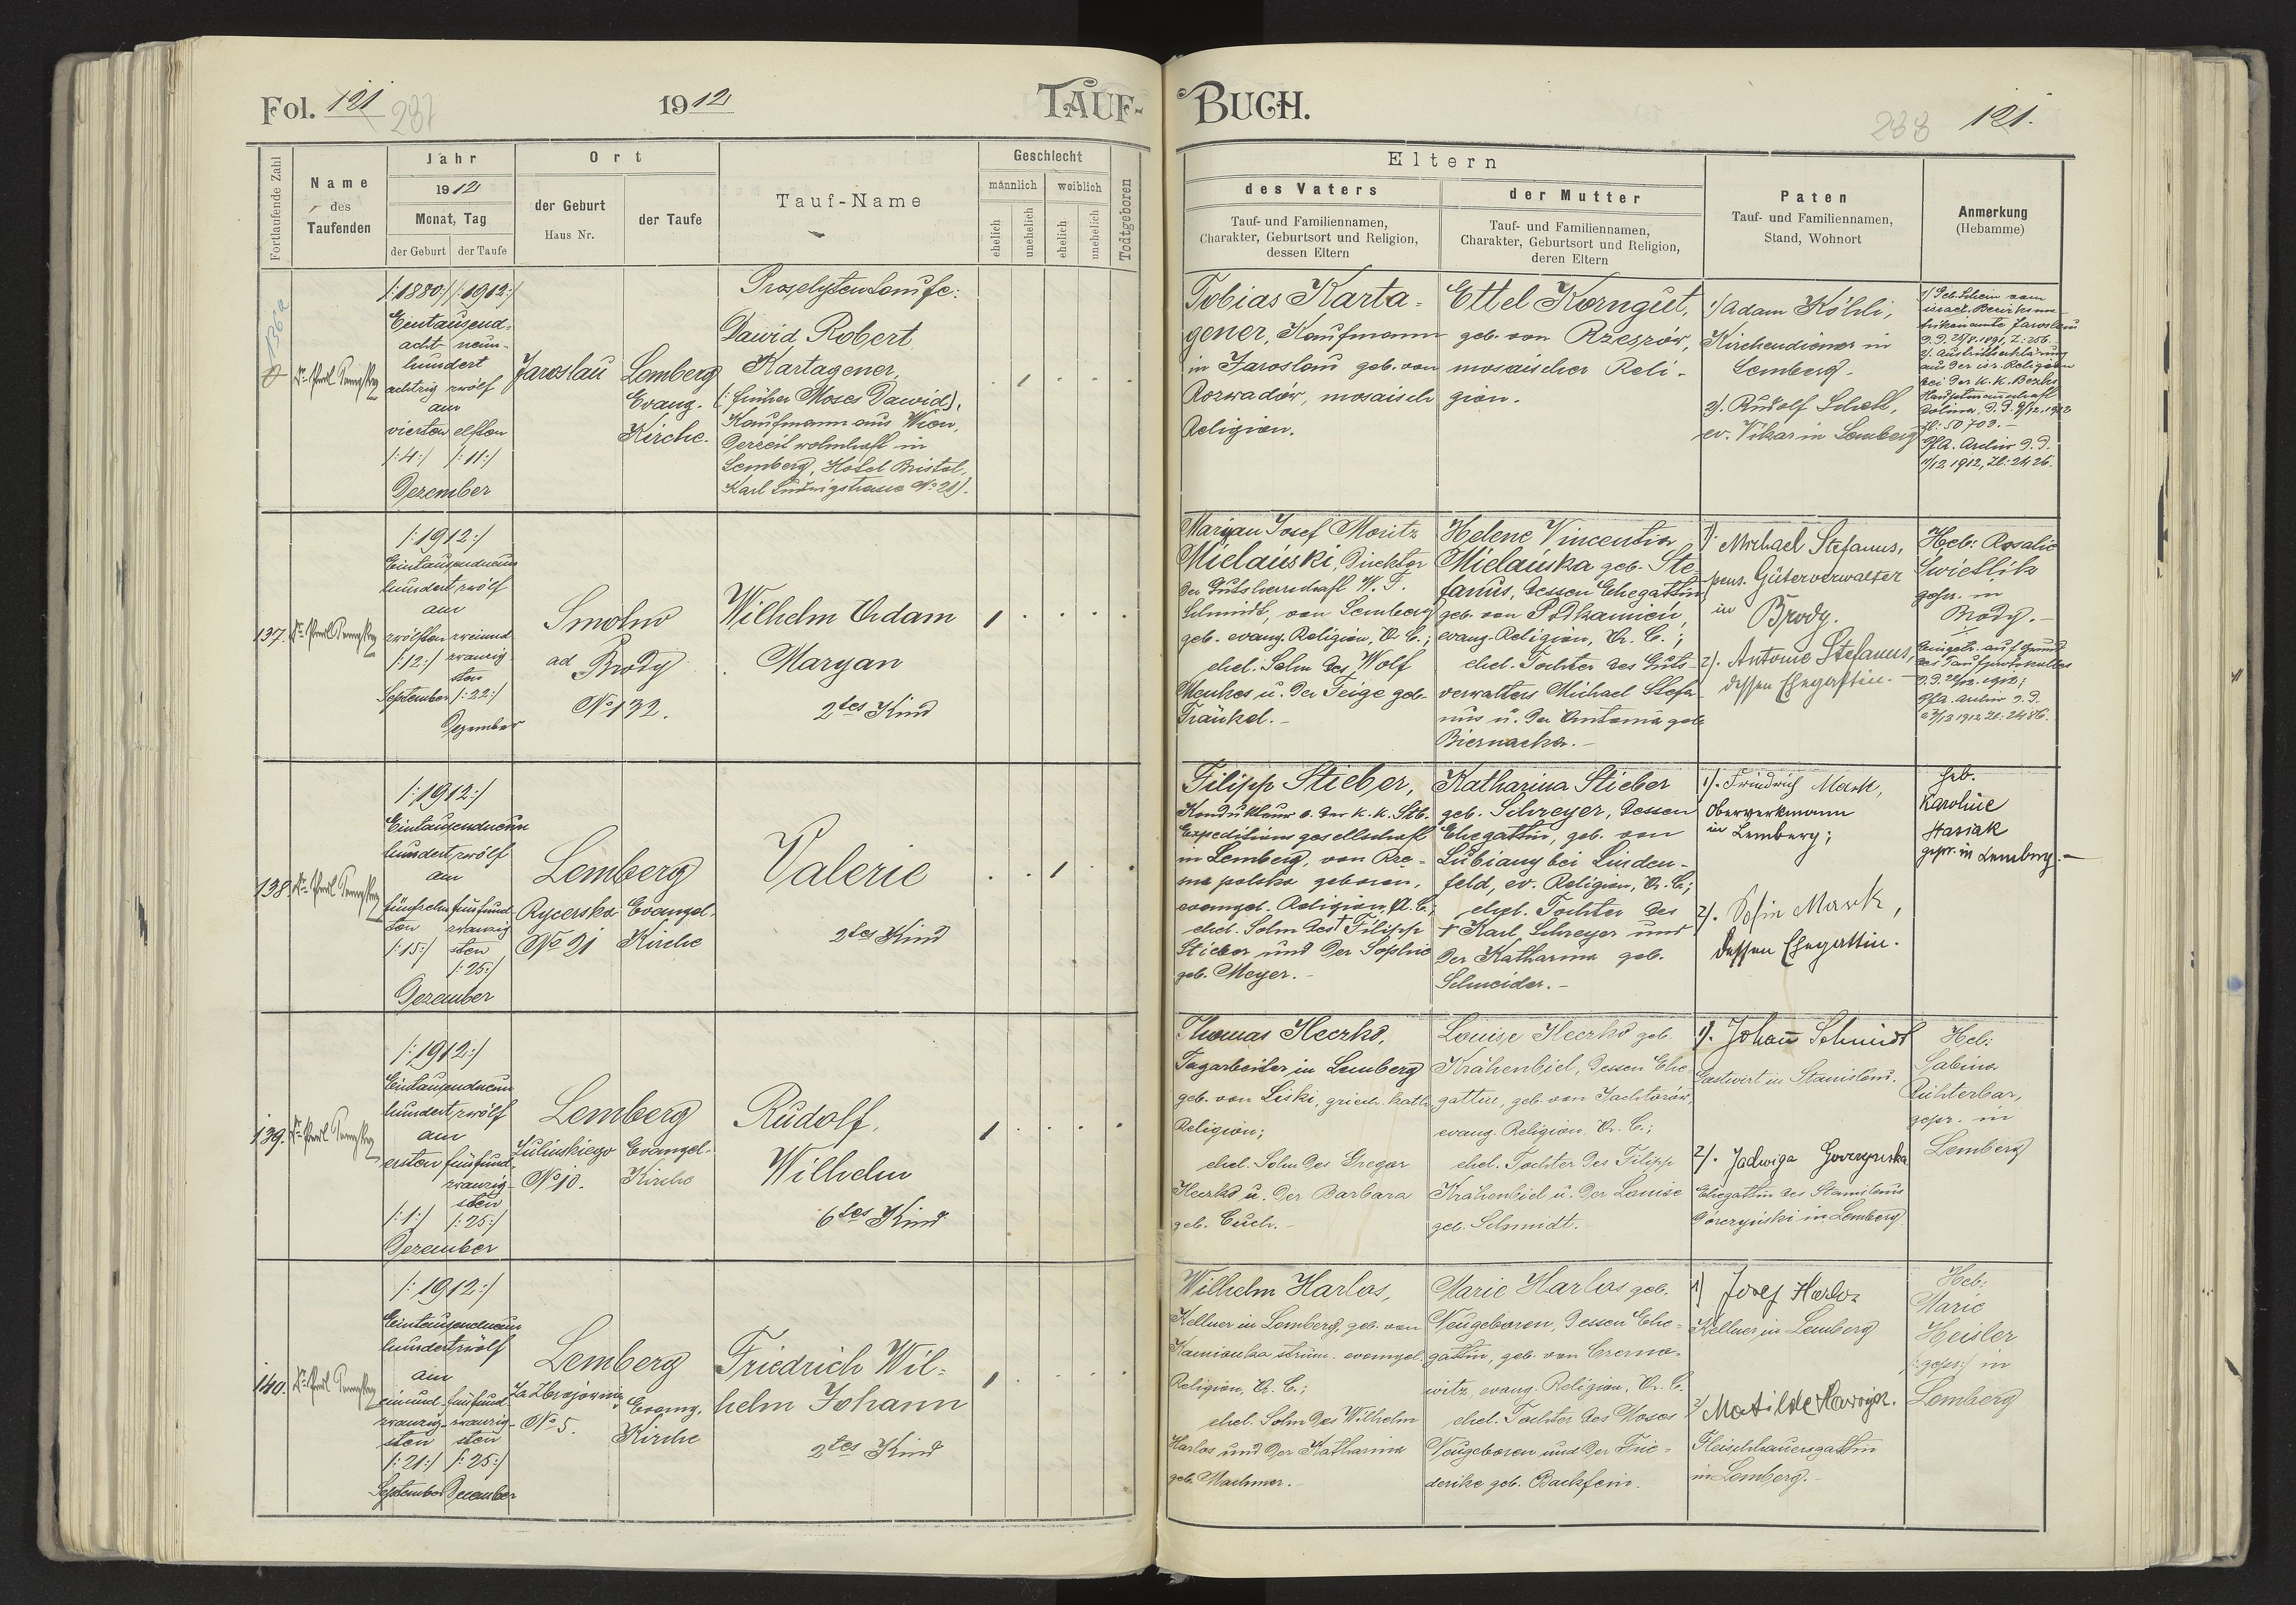 Fol. 121
237
1912
TAUF-
BUCH.
238
121.
Fortlaufende Zahl
Name
des
Taufenden
Jahr
1912
Monat, Tag
der Geburt
der Taufe
Ort
der Geburt
Haus Nr.
der Taufe
Tauf-Name
Geschlecht
männlich
weiblich
ehelich
unehelich
ehelich
unehelich
Todtgeboren
Eltern
des Vaters
Tauf- und Familiennamen,
Charakter, Geburtsort und Religion,
dessen Eltern
der Mutter
Tauf- und Familiennamen,
Charakter, Geburtsort und Religion,
deren Eltern
Paten
Tauf- und Familiennamen,
Stand, Wohnort
Anmerkung
(Hebamme)
136a
/:1880:/ /:1912:/
Eintausend-
acht- neun-
hundert
achtzig zwölf
am
vierten elften
/:4:/ /:11:/
Dezember
Jaroslau
Lemberg
Evang.
Kirche.
Proselytentaufe:
Dawid Robert
Kartagener,
(: früher Moses Dawid),
Kaufmann aus Wien,
derzeit wohnhaft in
Lemberg, Hotel Bristol,
Karl Ludwigstrasse No 21).
1
Tobias Karta-
gener, Kaufmann
in Jaroslau geb. von
Rozwadów, mosaisch
Religion.
Ettel Korngut,
geb. von Rzeszów,
mosaischer Reli-
gion.
1) Adam Köhli,
Kirchendiener in
Lemberg.
2). Rudolf Schell,
ev. Vikar in Lemberg
1) Geb. Schein vom
israel. Bezirksma-
trikenamte Jaroslau
2). Austrittserklärung
aus der isr. Religion
bei der k. k. Bezirks
Hauptmannschaft
Dolina, d. d. 9/12. 1912
Zl: 50703.-
Pfa. Archiv d. d.
11/12 1912, Zl: 2426.
137.
/:1912:/
Eintausendneun
hundert zwölf
am
zwölften zweiund
/:12:/ zwanzig
sten
September /:22:/
Dezember
Smolno
ad Brody
No 132.
Wilhelm Adam
Maryan
2tes Kind
1
Maryan Josef Moritz
Mielański, Direktor
der Gutsherrschaft W. T.
Schmidt, von Lemberg
geb. evang. Religion, A. C.;
ehel. Sohn des Wolf
Menkes u. der Feige geb.
Fränkel.-
Helene Vincentia
Mielańska geb. Ste-
fanus, dessen Ehegattin
geb. von Podkamień,
evang. Religion, A. C.;
ehel. Tochter des Guts-
verwalters Michael Stefa-
nus u. der Antonia geb.
Biernacka.-
1). Michael Stefanus,
pens. Güterverwalter
in
Brody.
2). Antonie Stefanus,
dessen Ehegattin.-
Heb: Rosalie
Świetlik
gepr. in
Brody.-
Eingetr. auf Grund
des Taufprotokolles
d. d. 22/12. 1912;
Pfa. Archiv d. d.
23/12 1912 Zl: 2486.
138.
/:1912:/
Eintausendneun
hundert zwölf
am
fünfzehn fünfund-
ten zwanzig
/:15:/ sten
/:25:/
Dezember
Lemberg
Rycerska Evangel.
No 21 Kirche
Valerie
2tes Kind
1
Filipp Stieber,
Kondukteur a. der k. k. Stb.
Expeditionsgesellschaft
in Lemberg, von Rze-
sna polska geboren,
evangel. Religion A. C.;
ehel. Sohn des † Filipp
Stieber und der Sophie
geb. Meyer.-
Katharina Stieber
geb. Schreyer, dessen
Ehegattin, geb. von
Lubiany bei Linden-
feld, ev. Religion, A. C.;
ehel. Tochter des
† Karl Schreyer und
der Katharina geb.
Schneider.-
1). Friedrich Mack,
Oberwerkmann
in Lemberg;
2). Sofie Mack,
dessen Ehegattin.
Heb.
Karoline
Stasiak
gepr. in Lemberg.-
139.
/:1912:/
Eintausendneun
hundert zwölf
am
ersten fünfund-
zwanzig-
sten
/:1:/ /:25:/
Dezember
Lemberg
Zulinskiego Evangel.
No 10. Kirche
Rudolf,
Wilhelm
6tes Kind
1
Thomas Heczko,
Tagarbeiter in Lemberg
geb. von Liski, griech. kath.
Religion;
ehel. Sohn des Gregor
Heczko u. der Barbara
geb. Cuch.-
Louise Heczko geb.
Krähenbiel, dessen Ehe-
gattin, geb. von Jachtorów,
evang. Religion A. C.;
ehel. Tochter des Filipp
Krähenbiel u. der Louise
geb. Schmidt.-
1). Johann Schmidt
Gastwirt in Stanislau.
2). Jadwiga Gorczyńska
Ehegattin des Stanislaus
Gorczyński in Lemberg
Heb:
Sabina
Richterbar,
gepr. in
Lemberg
140.
/:1912:/
Eintausendneun
hundert zwölf
am
einund- fünfund-
zwanzig- zwanzig-
sten sten
/:21:/ /:25:/
September December
Lemberg
Za Zbrojownią
No 5.
Evang.
Kirche
Friedrich Wil-
helm Johann
2tes Kind
1
Wilhelm Harlos,
Kellner in Lemberg, geb. von
Kamionka strum. evangel.
Religion, A. C.;
ehel. Sohn des Wilhelm
Harlos und der Katharina
geb. Machner.-
Marie Harlos geb.
Neugeboren, dessen Ehe-
gattin, geb. von Czerno-
witz, evang. Religion, A. C.
ehel. Tochter des Moses
Neugeboren und der Frie-
derike geb. Backfein.
1) Josef Harlos
Kellner in Lemberg
2) Matilde
Fleischhauersgattin
in Lemberg.-
Heb:
Marie
Heisler
/:gepr:/ in
Lemberg